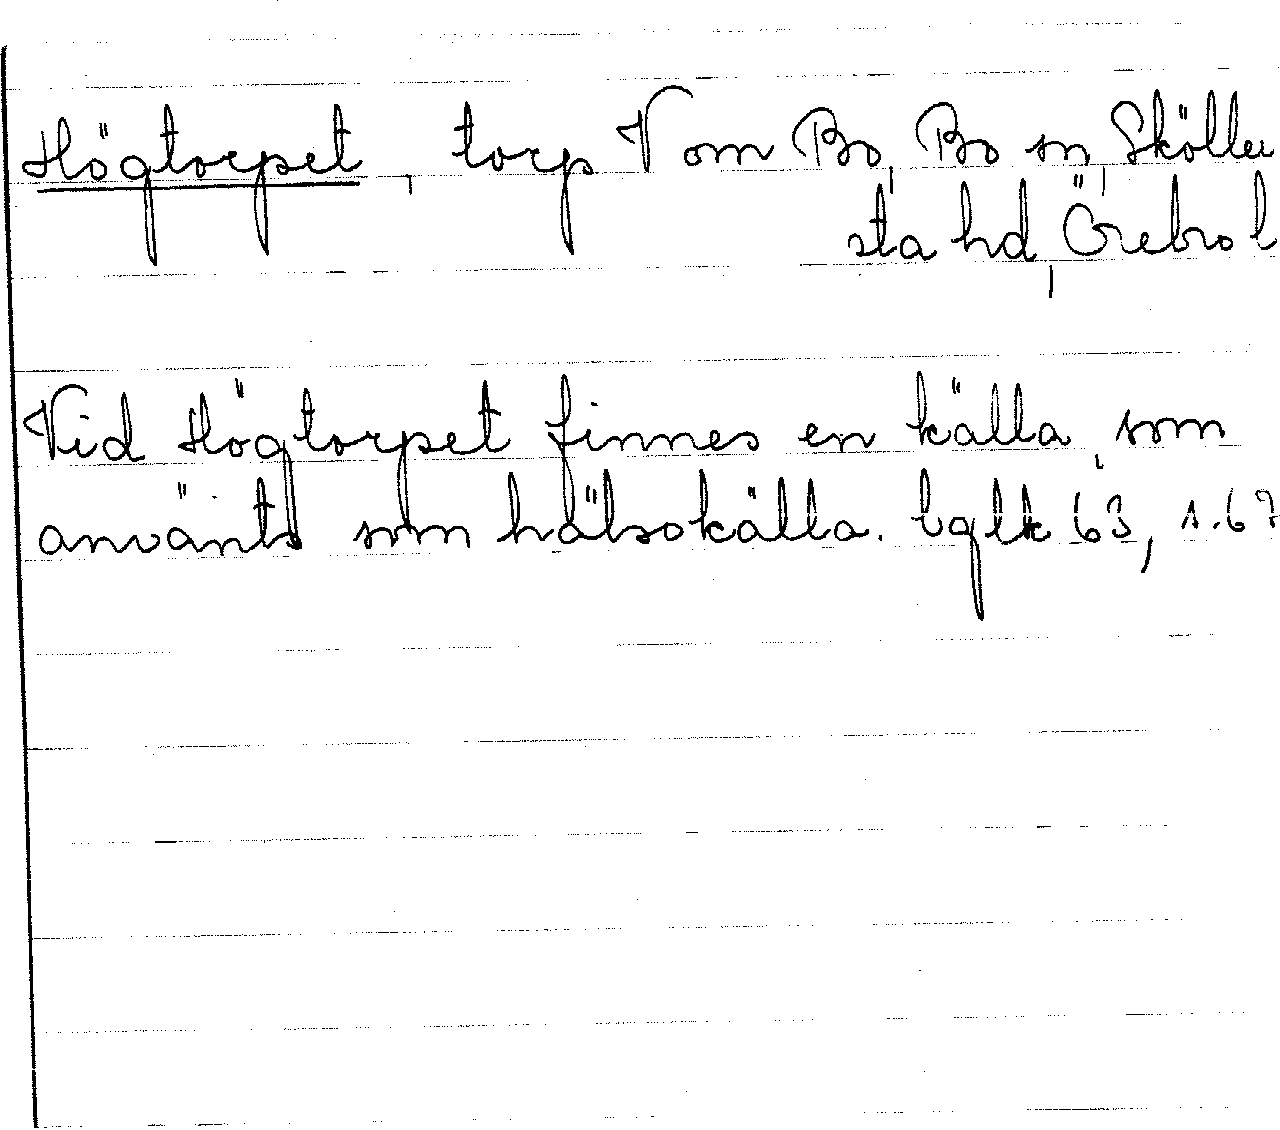 Högtorpet, torp V om Bo, Bo sn, Sköller
sta hd, Örebro l
Vid Högtorpet finnes en källa, som
använts som hälsokälla. lqlk 63, s. 67